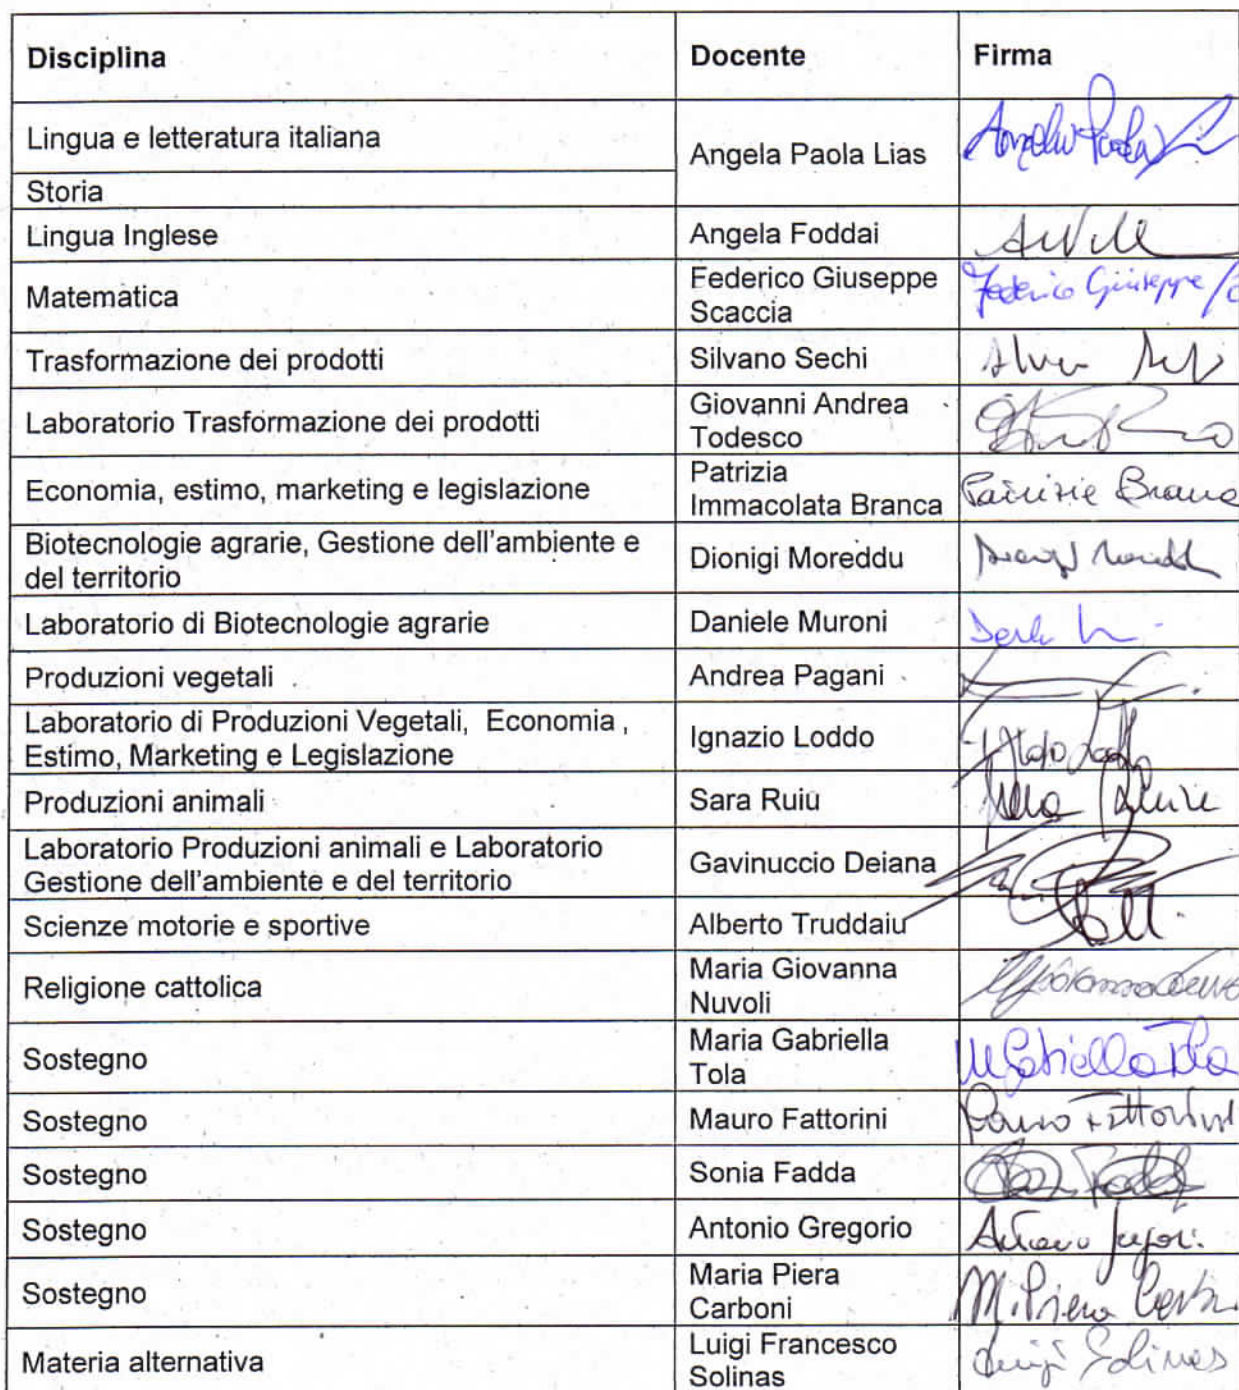 Disciplina Docente Firma
Lingua e letteratura italiana
Angela Paola Lias Angela Paola
Storia
Lingua Inglese Angela Foddai
Matematica Federico Giuseppe Federico Giuseppe
Scaccia
Trasformazione dei prodotti Silvano Sechi
Laboratorio Trasformazione dei prodotti Giovanni Andrea
Todesco
Economia, estimo, marketing e legislazione Patrizia
Immacolata Branca
Biotecnologie agrarie, Gestione dell'ambiente e
del territorio Dionigi Moreddu
Laboratorio di Biotecnologie agrarie Daniele Muroni
Produzioni vegetali Andrea Pagani
Laboratorio di Produzioni Vegetali, Economia ,
Estimo, Marketing e Legislazione Ignazio Loddo
Produzioni animali Sara Ruiu
Laboratorio Produzioni animali e Laboratorio
Gestione dell'ambiente e del territorio Gavinuccio Deiana
Scienze motorie e sportive Alberto Truddaiu
Religione cattolica Maria Giovanna
Nuvoli
Sostegno Maria Gabriella M Gabriella Tola
Tola
Sostegno Mauro Fattorini Fattorini
Sostegno Sonia Fadda
Sostegno Antonio Gregorio
Sostegno Maria Piera M. Piera
Carboni
Materia alternativa Luigi Francesco Luigi Solinas
Solinas